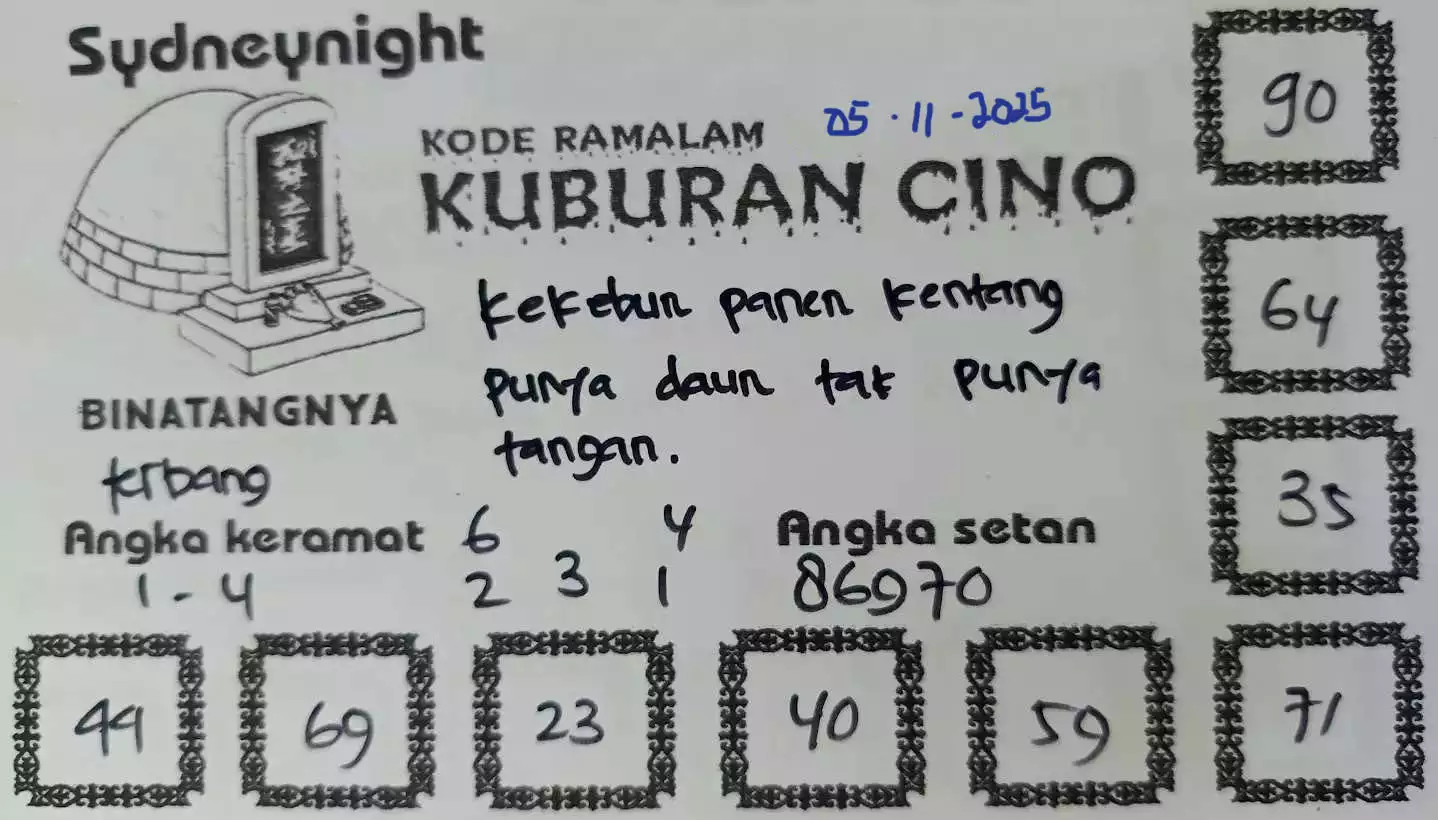 Sydneynight
05-11-2025
KODE RAMALAM
KUBURAN CINO
kekebun panen kentang
punya daun tak punya
tangan.
BINATANGNYA
terbang
Angka keramat
1-4
6 4
3
2 1
Angka setan
86970
90
64
35
44
69
23
40
59
71